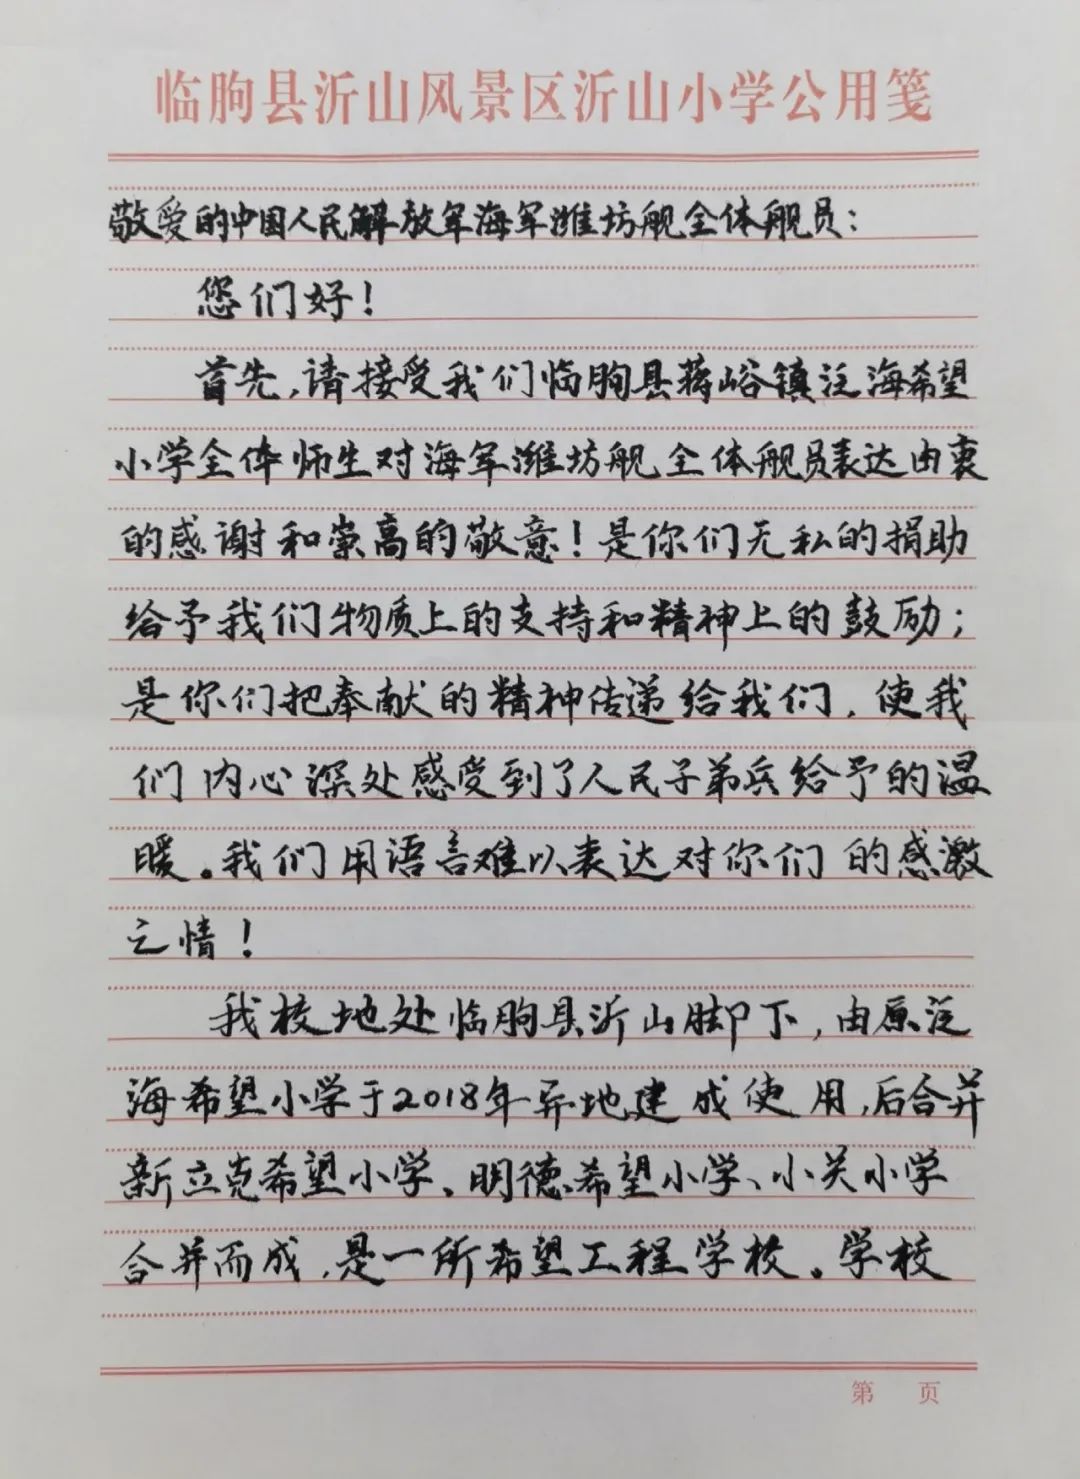 临朐县沂山风景区沂山小学公用笺
敬爱的中国人民解放军海军潍坊舰全体舰员：
您们好！
首先，请接受我们临朐县蒋峪镇泛海希望
小学全体师生对海军潍坊舰全体舰员表达由衷
的感谢和崇高的敬意！是你们无私的捐助
给予我们物质上的支持和精神上的鼓励；
是你们把奉献的精神传递给我们，使我
们内心深处感受到了人民子弟兵给予的温
暖。我们用语言难以表达对你们的感激
之情！
我校地处临朐县沂山脚下，由原泛
海希望小学于2018年异地建成使用，后合并
新立克希望小学、明德希望小学、小关小学
合并而成，是一所希望工程学校。学校
第 页